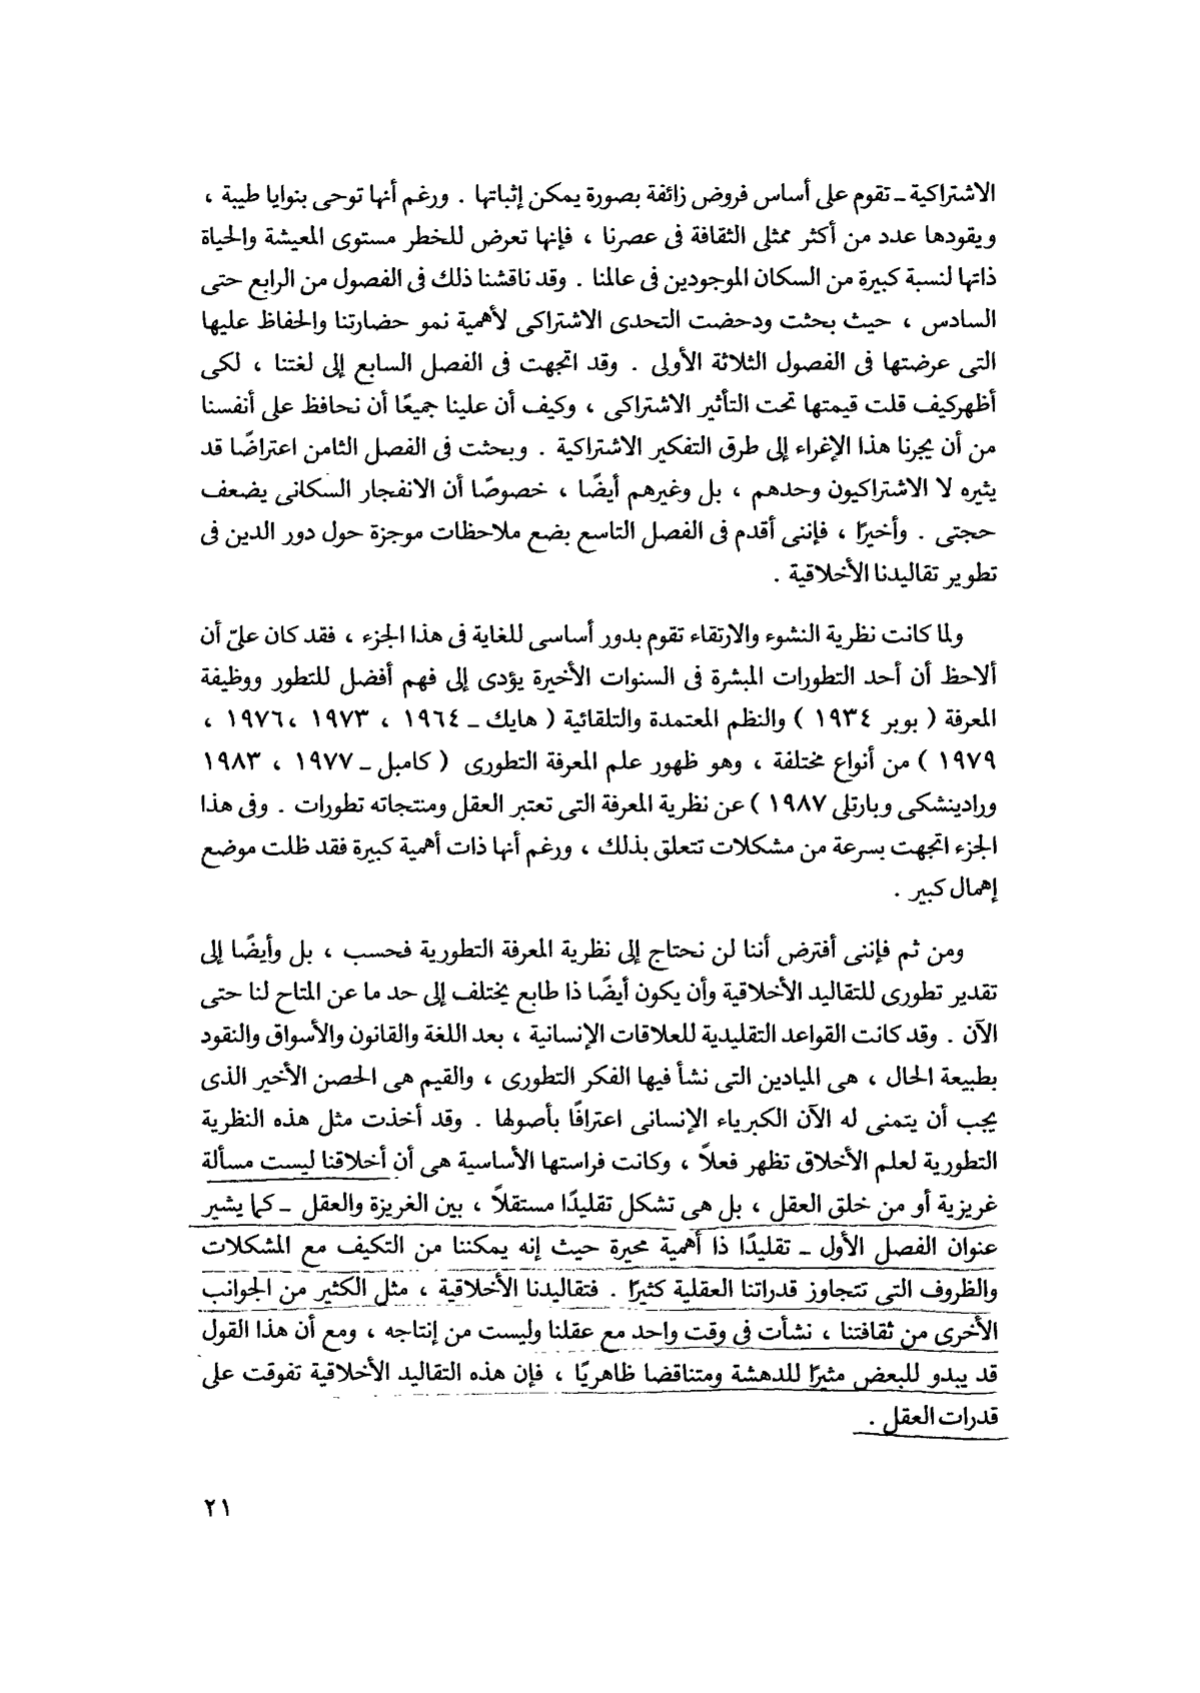 الاشتراكية ـ تقوم على أساس فروض زائفة بصورة يمكن إثباتها . ورغم أنها توحى بنوايا طيبة ،
ويقودها عدد من أكثر ممثلى الثقافة فى عصرنا ، فإنها تعرض للخطر مستوى المعيشة والحياة
ذاتها لنسبة كبيرة من السكان الموجودين فى عالمنا . وقد ناقشنا ذلك فى الفصول من الرابع حتى
السادس ، حيث بحثت ودحضت التحدى الاشتراكى لأهمية نمو حضارتنا والحفاظ عليها
التى عرضتها فى الفصول الثلاثة الأولى . وقد اتجهت فى الفصل السابع إلى لغتنا ، لكى
أظهركيف قلت قيمتها تحت التأثير الاشتراكى ، وكيف أن علينا جميعًا أن نحافظ على أنفسنا
من أن يجرنا هذا الإغراء إلى طرق التفكير الاشتراكية . وبحثت فى الفصل الثامن اعتراضًا قد
يثيره لا الاشتراكيون وحدهم ، بل وغيرهم أيضًا ، خصوصًا أن الانفجار السكانى يضعف
حجتى . وأخيرًا ، فإننى أقدم فى الفصل التاسع بضع ملاحظات موجزة حول دور الدين فى
تطوير تقاليدنا الأخلاقية .
ولما كانت نظرية النشوء والارتقاء تقوم بدور أساسى للغاية فى هذا الجزء ، فقد كان علىّ أن
ألاحظ أن أحد التطورات المبشرة فى السنوات الأخيرة يؤدى إلى فهم أفضل للتطور ووظيفة
المعرفة ( بوبر ١٩٣٤ ) والنظم المعتمدة والتلقائية ( هايك ـ ١٩٦٤ ، ١٩٧٣ ،١٩٧٦ ،
١٩٧٩ ) من أنواع مختلفة ، وهو ظهور علم المعرفة التطورى ( كامبل ـ ١٩٧٧ ، ١٩٨٣
ورادينشكى وبارتلى ١٩٨٧ ) عن نظرية المعرفة التى تعتبر العقل ومنتجاته تطورات . وفى هذا
الجزء اتجهت بسرعة من مشكلات تتعلق بذلك ، ورغم أنها ذات أهمية كبيرة فقد ظلت موضع
إهمال كبير .
ومن ثم فإننى أفترض أننا لن نحتاج إلى نظرية المعرفة التطورية فحسب ، بل وأيضًا إلى
تقدير تطورى للتقاليد الأخلاقية وأن يكون أيضًا ذا طابع يختلف إلى حد ما عن المتاح لنا حتى
الآن . وقد كانت القواعد التقليدية للعلاقات الإنسانية ، بعد اللغة والقانون والأسواق والنقود
بطبيعة الحال ، هى الميادين التى نشأ فيها الفكر التطورى ، والقيم هى الحصن الأخير الذى
يجب أن يتمنى له الآن الكبرياء الإنسانى اعترافًا بأصولها . وقد أخذت مثل هذه النظرية
التطورية لعلم الأخلاق تظهر فعلاً ، وكانت فراستها الأساسية هى أن أخلاقنا ليست مسألة
غريزية أو من خلق العقل ، بل هى تشكل تقليدًا مستقلاً ، بين الغريزة والعقل ـ كما يشير
عنوان الفصل الأول ـ تقليدًا ذا أهمية محيرة حيث إنه يمكننا من التكيف مع المشكلات
والظروف التى تتجاوز قدراتنا العقلية كثيرًا . فتقاليدنا الأخلاقية ، مثل الكثير من الجوانب
الأخرى من ثقافتنا ، نشأت فى وقت واحد مع عقلنا وليست من إنتاجه ، ومع أن هذا القول
قد يبدو للبعض مثيرًا للدهشة ومتناقضا ظاهريًا ، فإن هذه التقاليد الأخلاقية تفوقت على
قدرات العقل .
٢١